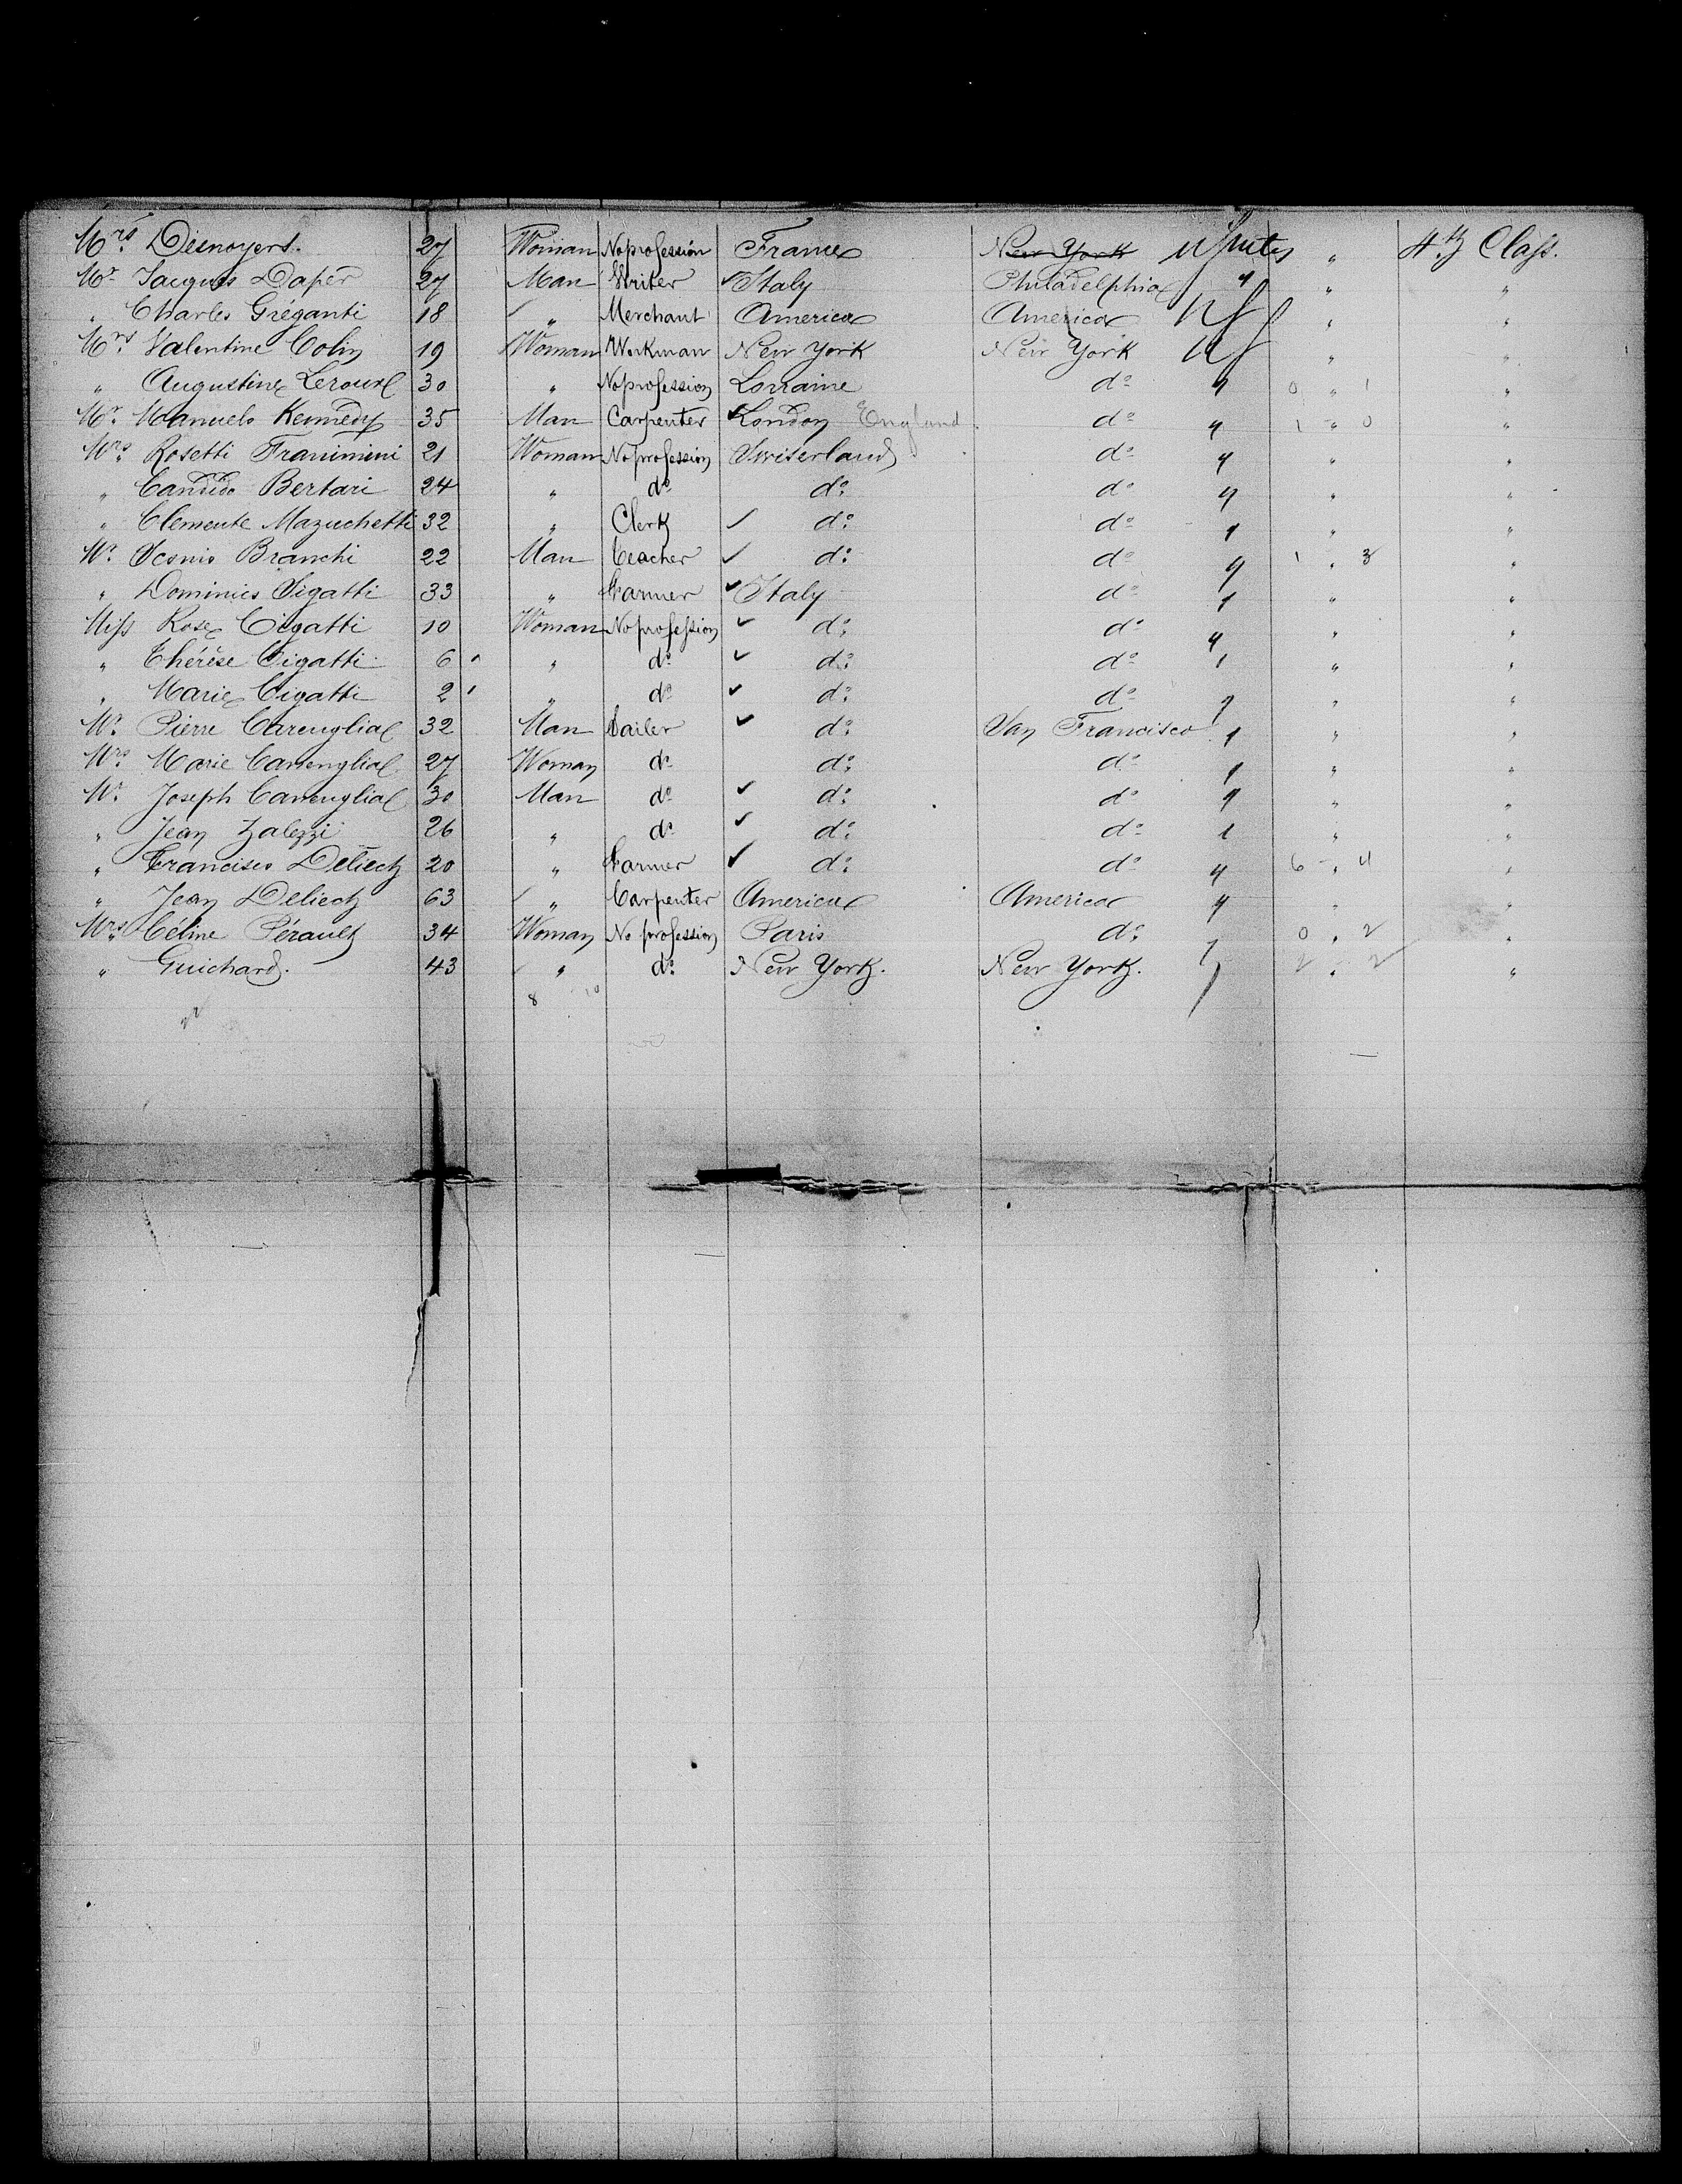 Mrs Desnoyers. 27 Woman No profession France New York U States " 4th Class.
Mr Jacques Daper 27 Man Writer Italy Philadelphia " "
" Charles Gréganti 18 " Merchant America America " "
Mrs Valentine Colin 19 Woman Workman New York New York " "
" Augustine Leroux 30 " No profession Lorraine do 0 " 1 "
Mr Manuelo Kennedy 35 Man Carpenter London England do 1 " 0 "
Mrs Rosetti Franimini 21 Woman No profession Switserland do " "
" Candido Bertari 24 " do do do " "
" Clemente Mazuchetti 32 " Clerk do do " "
Mr Branchi 22 Man Teacher do do 1 " 3 "
" Dominics Cigatti 33 " Farmer Italy do " "
Miss Rose Cigatti 10 Woman No profession do do " "
" Thérèse Cigatti 6 " do do do " "
" Marie Cigatti 2 " do do do " "
Mr Pierre Carenglial 32 Man Sailer do San Francisco " "
Mrs Marie Carenglial 27 Woman do do do " "
Mr Joseph Carenglial 30 Man do do do " "
" Jean Zalezzi 26 " do do do " "
" Francisco Deliech 20 " Farmer do do 6 " 4 "
" Jean Deliech 63 " Carpenter America America " "
Mrs Céline Pérault 34 Woman No profession Paris do 0 " 2 "
" Guichard. 43 " do New York. New York. 2 " 2 "
8 10